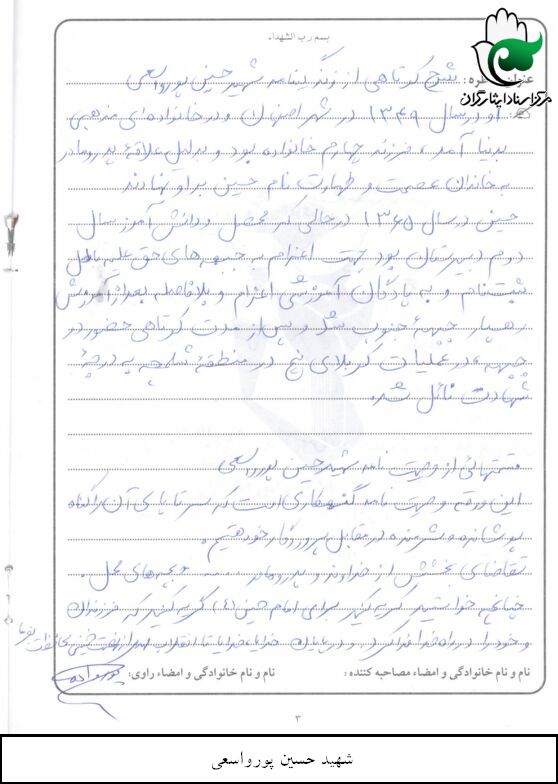 بسم رب الشهداء
مرکز اسناد ایثارگران
عنوان خاطره: شرح کوتاهی از زندگینامه شهید حسین پورواسعی
او در سال ۱۳۴۹ در شهر اصفهان و در خانواده ای مذهبی
بدنیا آمد، فرزند چهارم خانواده بود و بدلیل علاقه پدر و مادر
به خاندان عصمت و طهارت نام حسین بر او نهادند
حسین در سال ۱۳۶۵ در حالی که محصل و دانش آموز سال
دوم دبیرستان بود جهت اعزام به جبهه های حق علیه باطل
ثبت نام و به پادگان آموزشی اعزام و بلافاصله بعد از آموزش
رهسپار جبهه جنوب شد و پس از مدت کوتاهی حضور در
جبهه، در عملیات کربلای پنج در منطقه شلمچه به درجه
شهادت نائل شد.
قسمتهائی از وصیت نامه شهید حسین پورواسعی
این ورقه وصیت نامه گنهکاری است که سر تا پای آن را گناه
پوشانده و شرمنده در مقابل پروردگار خود هستیم.
تقاضای بخشش از خداوند و پدر و مادر ..... و بچه های محل.
چنانچه خواستید گریه کنید برای امام حسین (ع) گریه کنید که فرزندان
و خود را در راه خدا فدا کرد و در پایان خدایا، خدایا تا انقلاب مهدی از نهضت خمینی محافظت بفرما
نام و نام خانوادگی و امضاء مصاحبه کننده :
نام و نام خانوادگی و امضاء راوی:
۳
شهید حسین پورواسعی